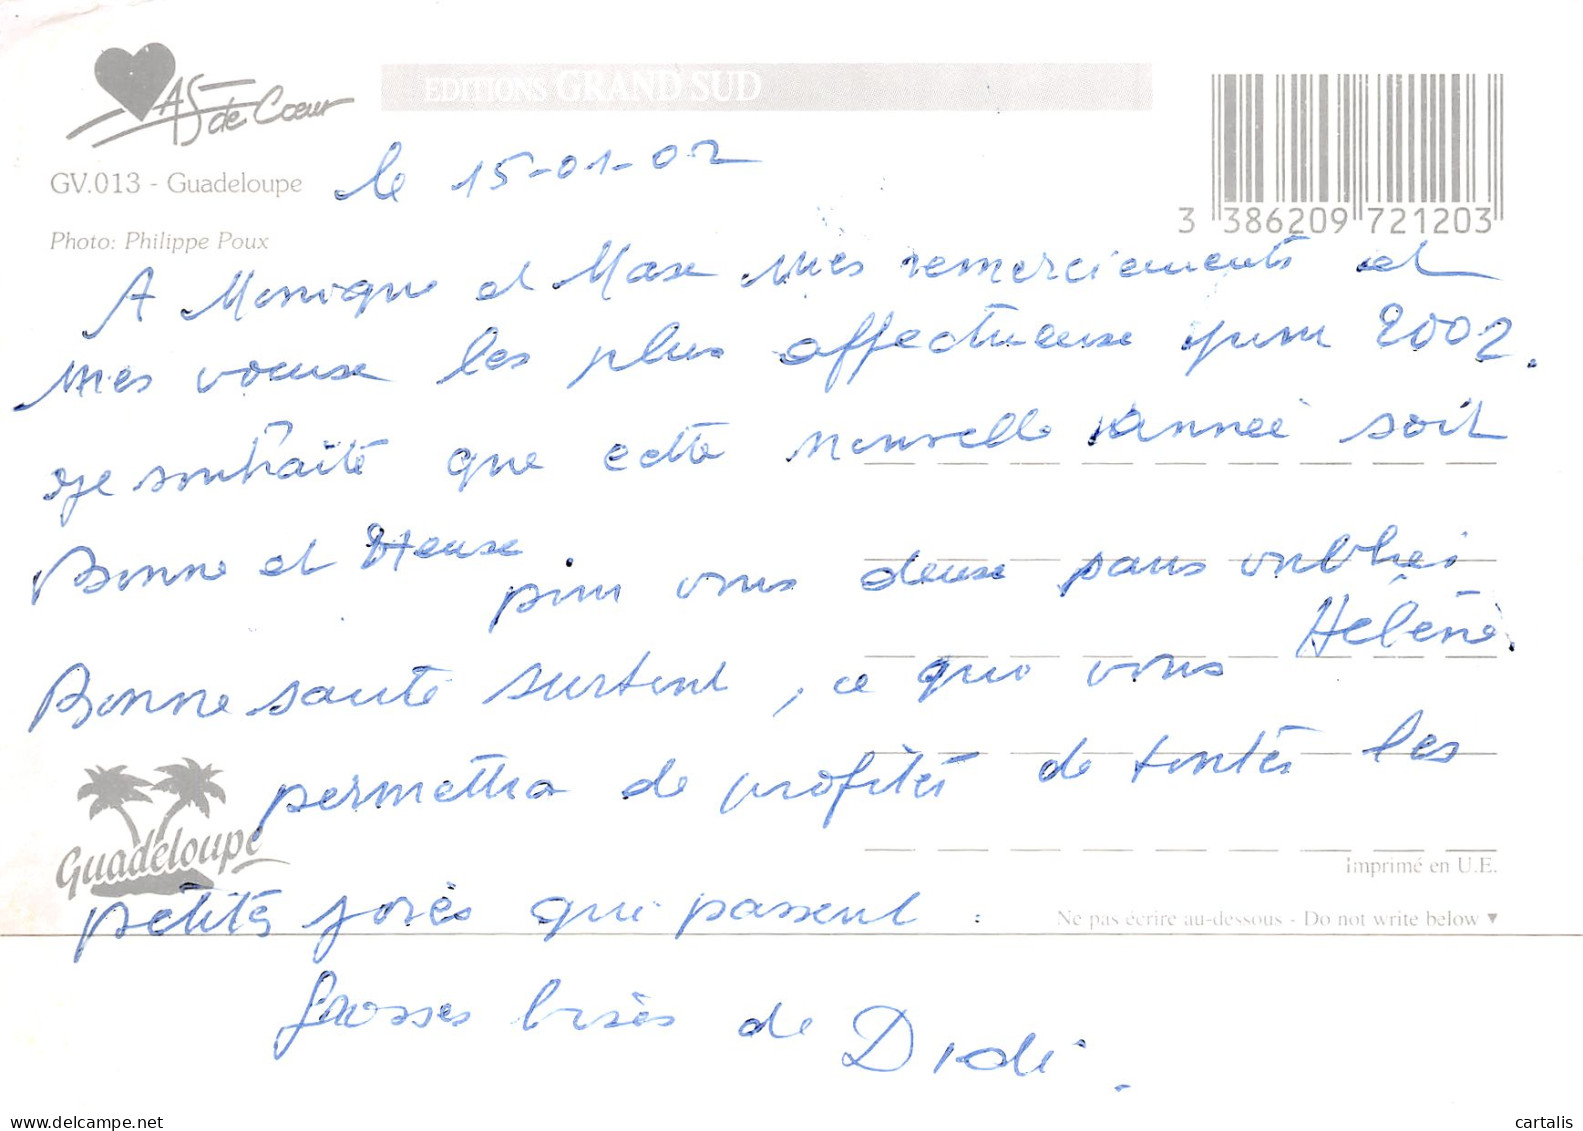 As de Cœur
EDITIONS GRAND SUD
GV.013 - Guadeloupe
Photo: Philippe Poux
3 386209 721203
le 15-01-02
A Monique et Max mes remerciements et
mes voeux les plus affectueux pour 2002.
Je souhaite que cette nouvelle année soit
Bonne et Heureuse.
pour vous deux sans oublier
Hélène.
Bonne santé surtout, ce qui vous
permettra de profiter de toutes les
petites joies qui passent.
Grosses bises de Didi.
Guadeloupe
Imprimé en U.E.
Ne pas écrire au-dessous - Do not write below ▼
www.delcampe.net
cartalis